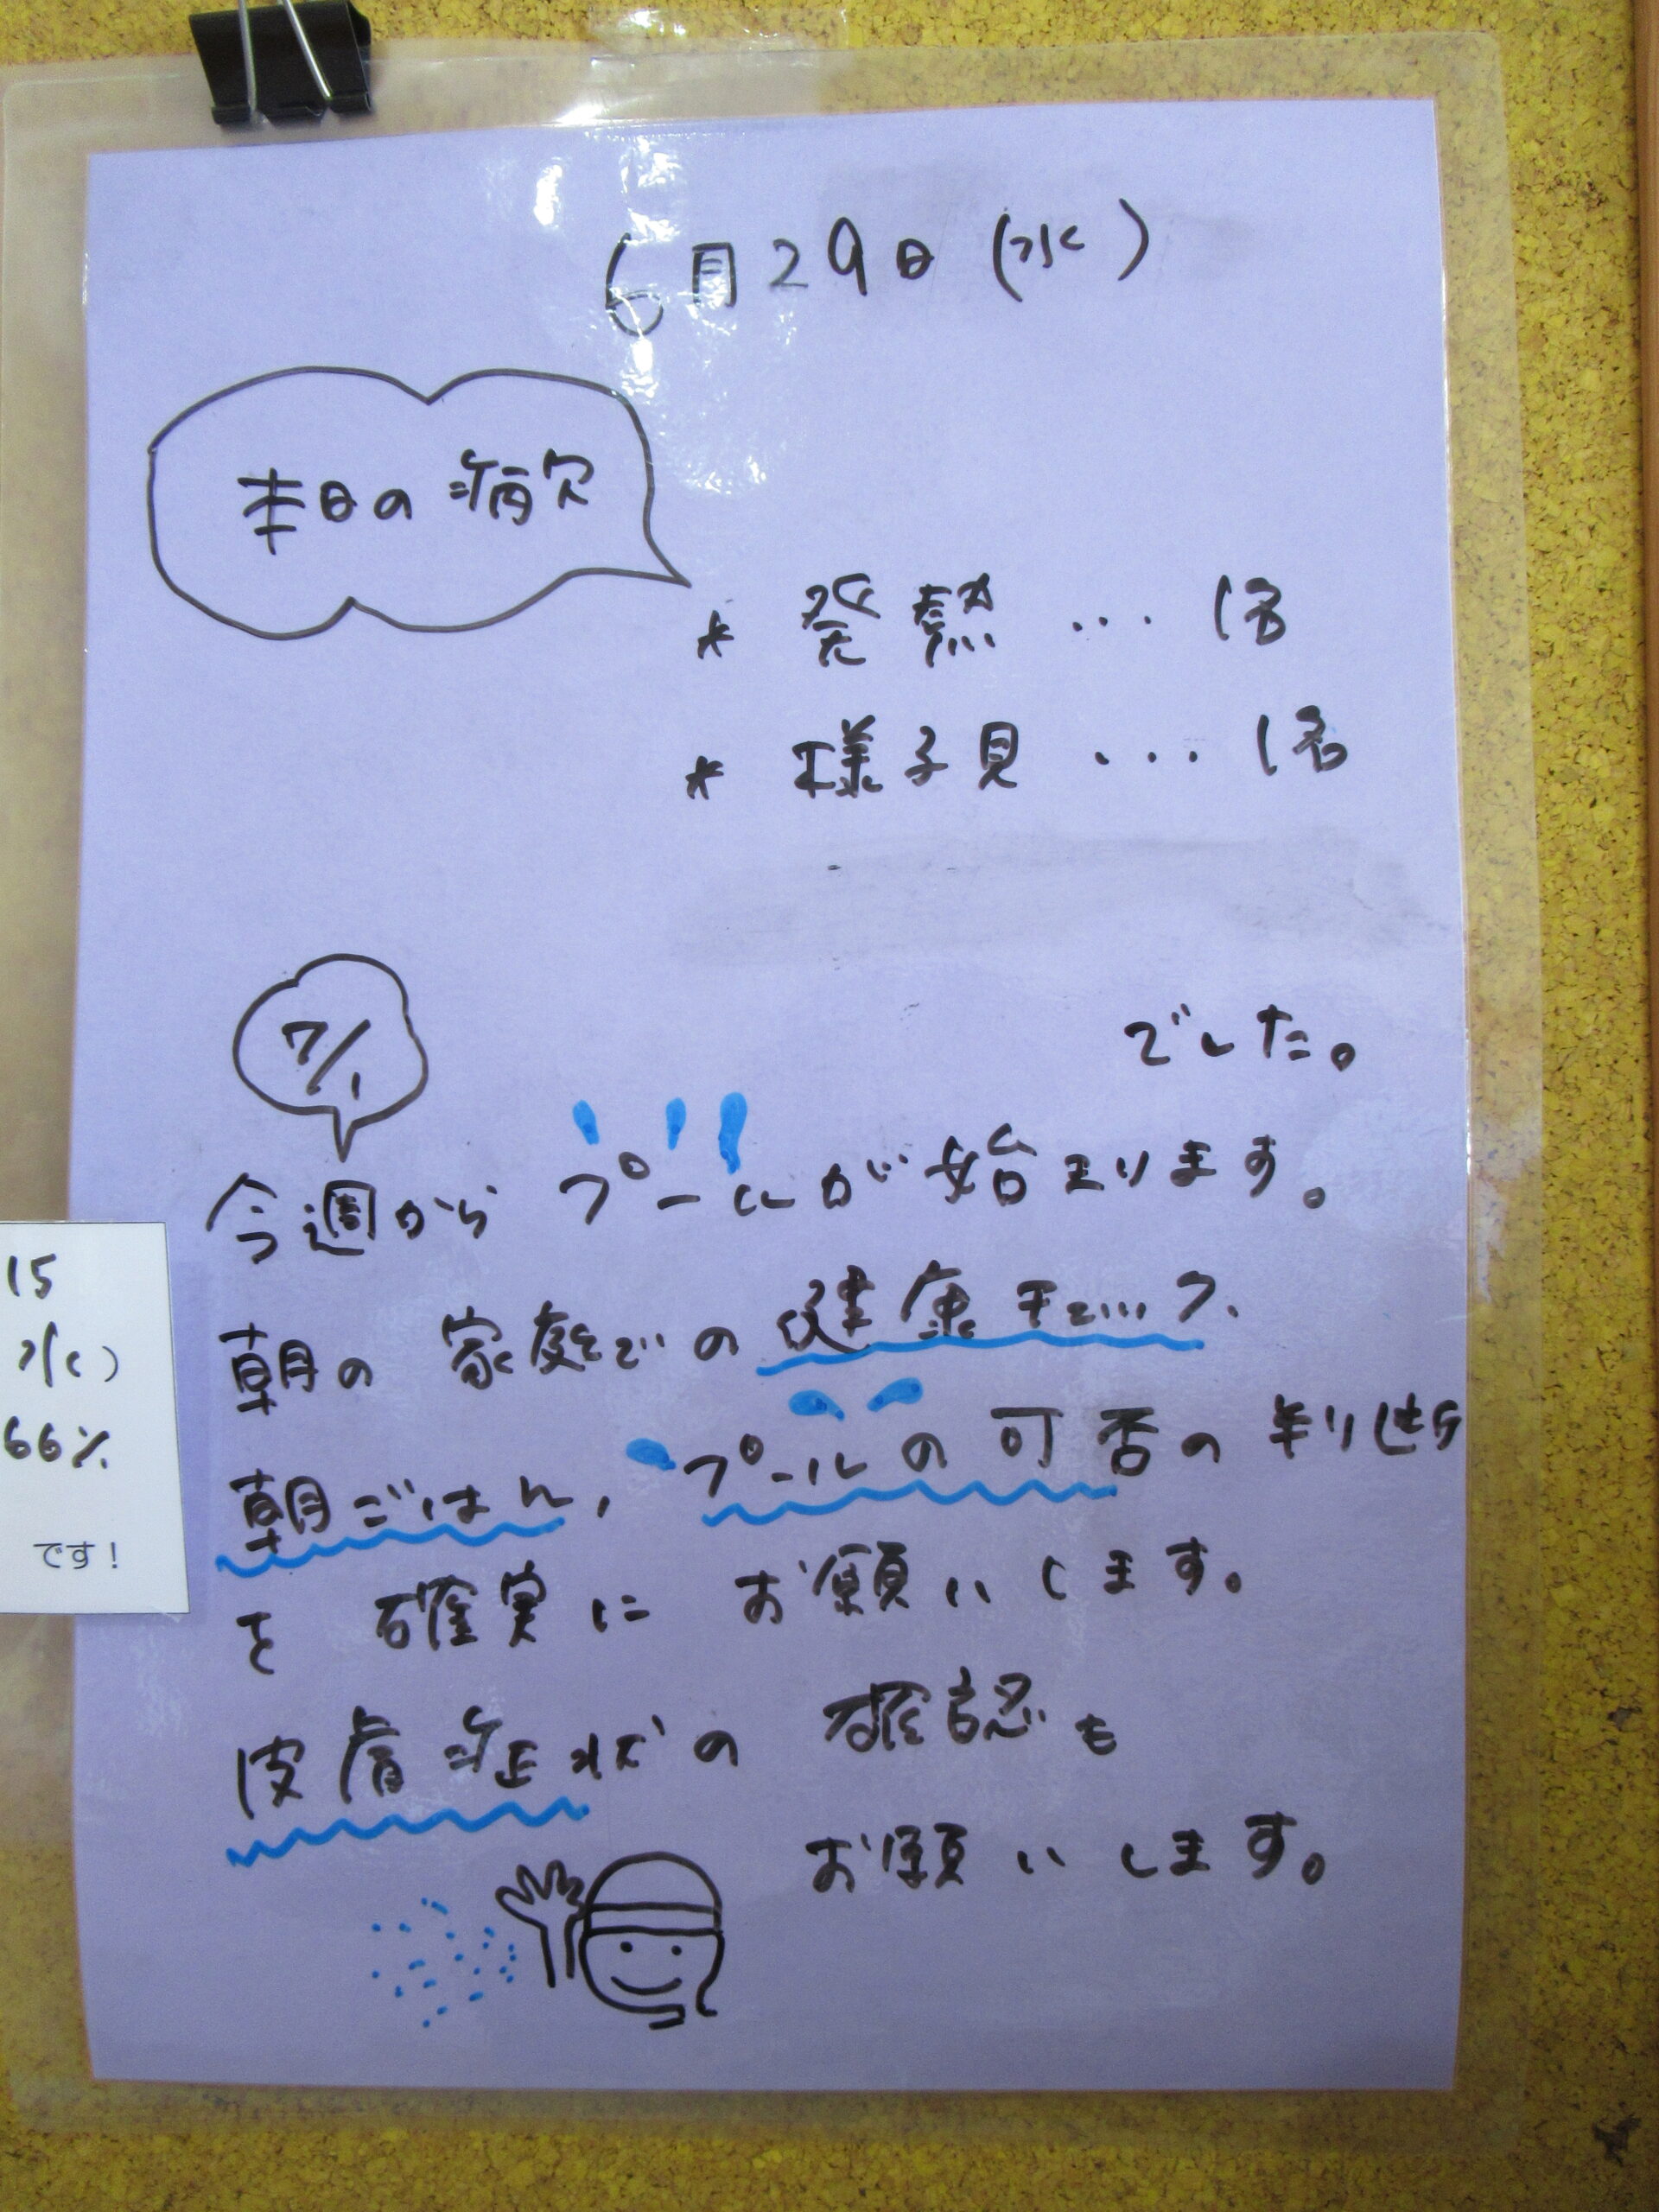 6月29日(水)
本日の病欠
* 発熱 ... 1名
* 様子見 ... 1名
でした。
7/1
今週から プールが始まります。
朝の 家庭での 健康チェック、
朝ごはん, プールの可否の判断
を 確実に お願いします。
皮膚症状の 確認も
お願いします。
15
水)
66%
です!